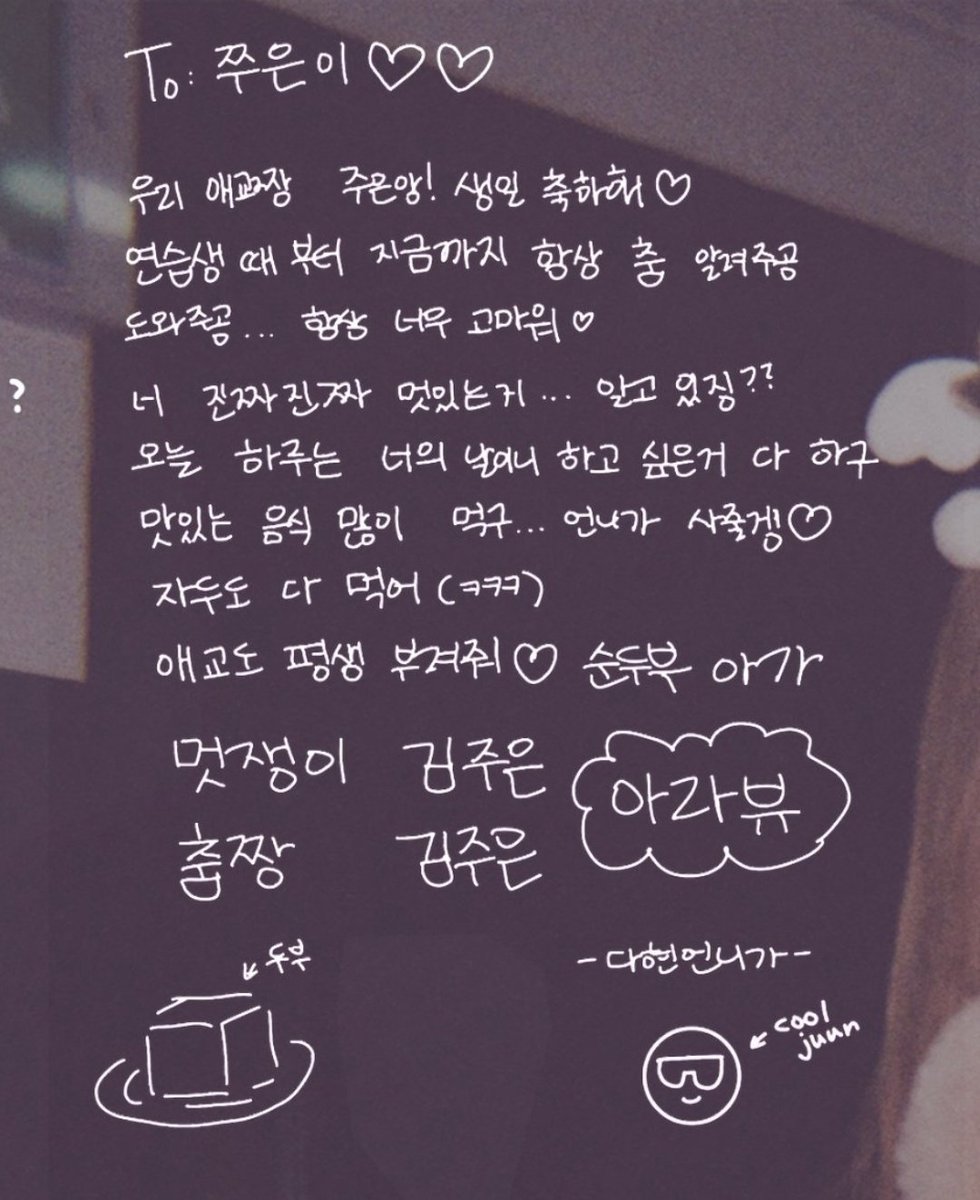 To: 쭈은이♡♡
우리 애교짱 주은앙! 생일 축하해♡
연습생 때부터 지금까지 항상 춤 알려주공
도와주공... 항상 너무 고마워♡
?
너 진짜진짜 멋있는거... 알고 있징??
오늘 하루는 너의 날이니 하고 싶은거 다 하구
맛있는 음식 많이 먹구... 언니가 사줄겡!♡
자두도 다 먹어 (ㅋㅋㅋ)
애교도 평생 부려줘♡ 순두부 아가
멋쟁이 김주은
아라뷰
춤짱 김주은
두부
-다현언니가-
cool
juun